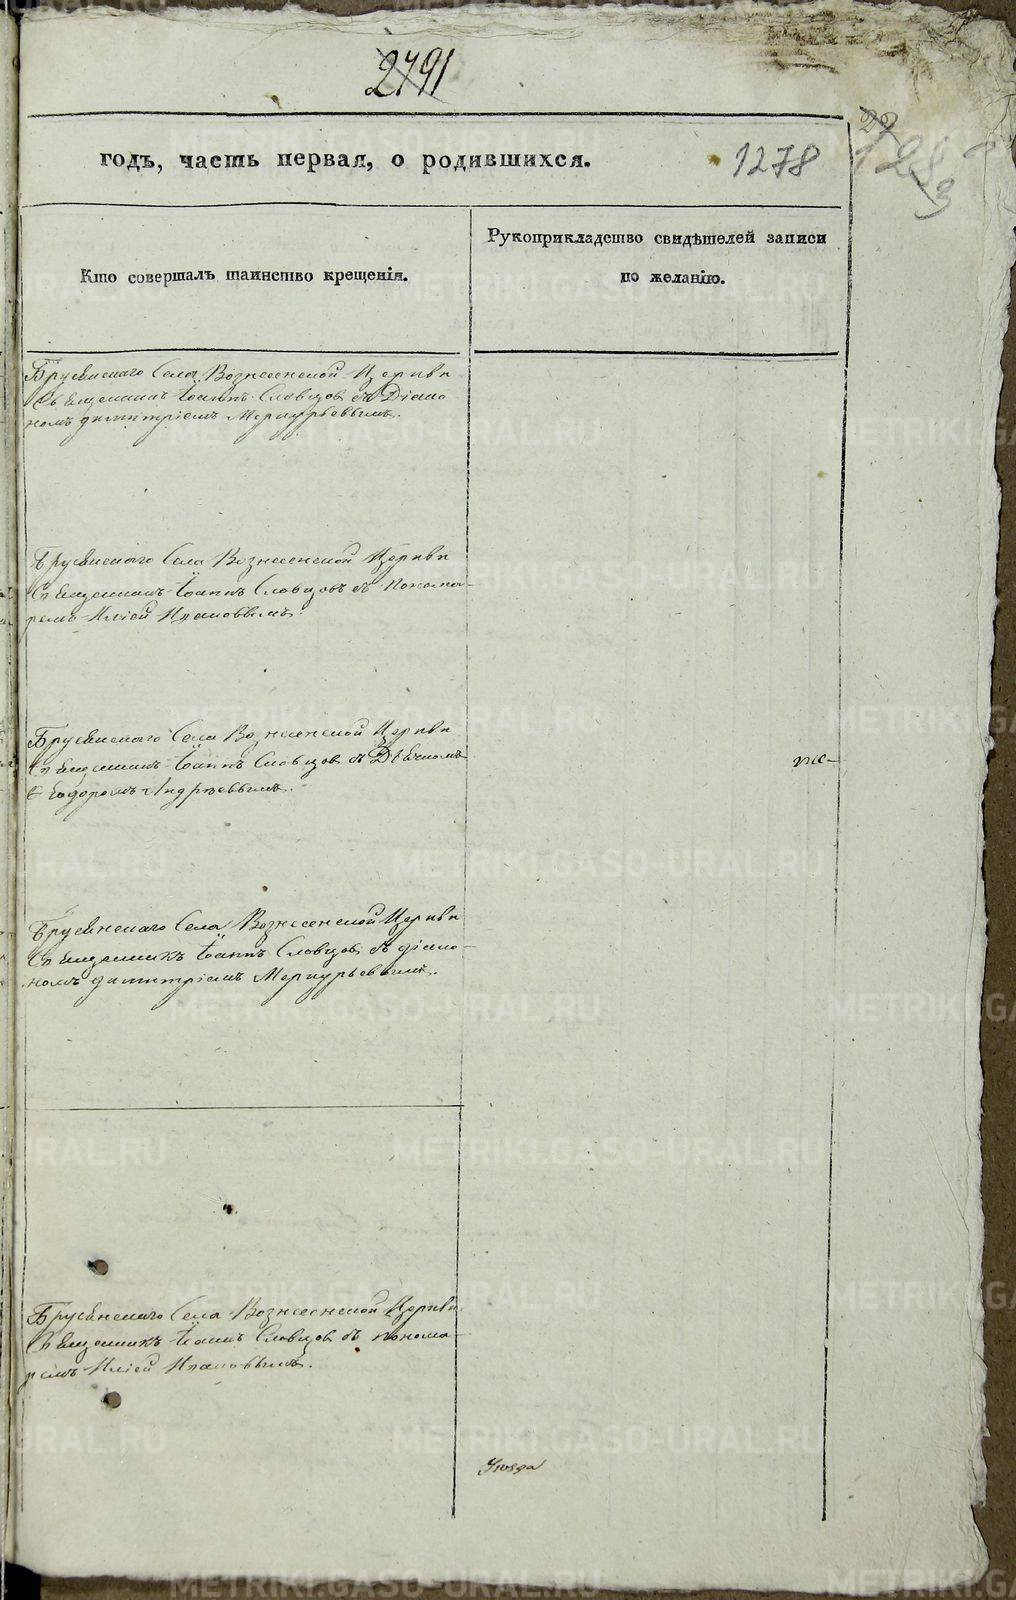 2791
годъ, часть первая, о родившихся.
1278
Кто совершалъ таинство крещенія.
Рукоприкладство свидѣтелей записи
по желанію.
Брусянскаго Села Вознесенской Церкви
Священникъ Іоаннъ Словцов съ Діако
номъ димитріемъ Меркурьевымъ.
Брусянскаго Села Вознесенской Церкви
Священникъ Іоаннъ Словцовъ съ Понома-
ремъ Иліей Ивановымъ.
Брусянскаго Села Вознесенской Церкви
Священникъ Іоаннъ Словцов съ Дьячкомъ
Ѳеодоромъ Андреевымъ.
Брусянскаго Села Вознесенской Церкви
Священникъ Іоаннъ Словцов съ діако-
номъ димитріемъ Меркурьевымъ.
Брусянскаго Села Вознесенской Церкви
Священникъ Іоаннъ Словцов съ понома-
ремъ Иліей Ивановымъ.
METRIKI.GASO-URAL.RU